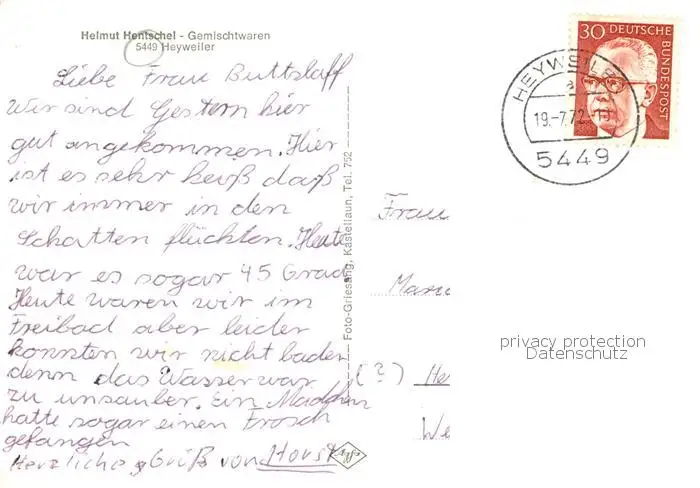 Helmut Hentschel - Gemischtwaren
5449 Heyweiler
Liebe Frau Buttslaff
Wir sind Gestern hier
gut angekommen. Hier
ist es sehr heiß daß
wir immer in den
Schatten flüchten. Heute
war es sogar 45 Grad
Heute waren wir im
Freibad aber leider
konnten wir nicht baden
denn das Wasser war
zu unsauber. Ein Mädchen
hatte sogar einen Frosch
gefangen
Herzliche Grüß von Horst
Foto-Griesang, Kastellaun, Tel. 752
30 DEUTSCHE
BUNDESPOST
HEYWEILER
a
19.-7.72.-11
5449
Frau
(?)
We
privacy protection
Datenschutz